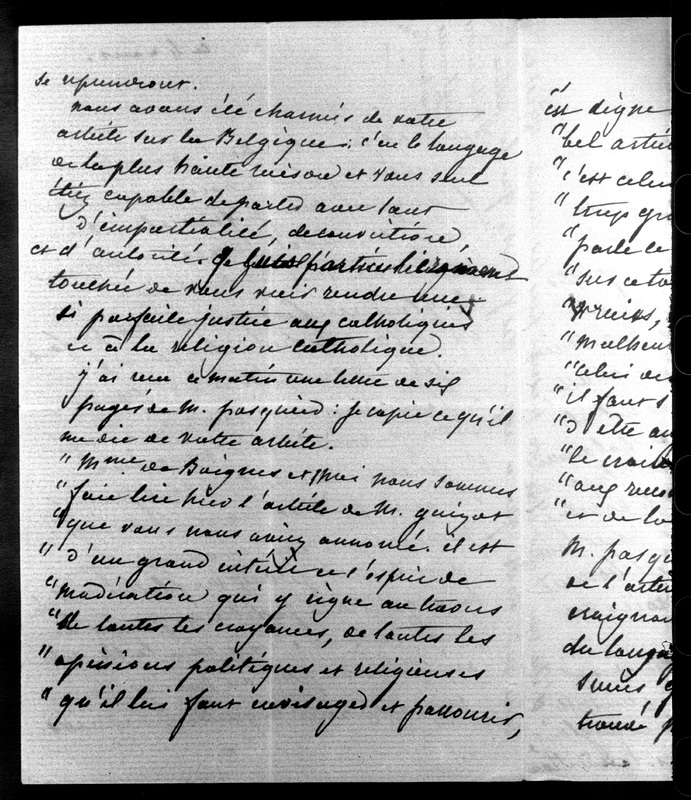 se reprendront.
nous avons été charmés de votre
article sur la Belgique : c'est le langage
de la plus haute raison et vous seul
étiez capable de parler avec tant
d'impartialité, de conviction,
et d'autorité. je suis particulièrement
touchée de vous voir rendre une
si parfaite justice aux catholiques
et à la religion catholique.
j'ai reçu ce matin une lettre de six
pages de M. pasquier : je copie ce qu'il
me dit de votre article.
" Mme de Boignes et moi nous sommes
" fait lire hier l'article de M. guizot
" que vous nous aviez annoncé. il est
" d'un grand intérêt et l'esprit de
" modération qui y règne au travers
" de toutes les croyances, de toutes les
" opinions politiques et religieuses
" qu'il lui faut envisager et parcourir,
est digne
" bel articl
" c'est celui
" trop gra
" parle ce
" sur ce to
" malheur
" celui de
" il faut s
" d'être au
" le crain
" aux
" et de la
M. pasqu
de l'artic
craignan
du langa